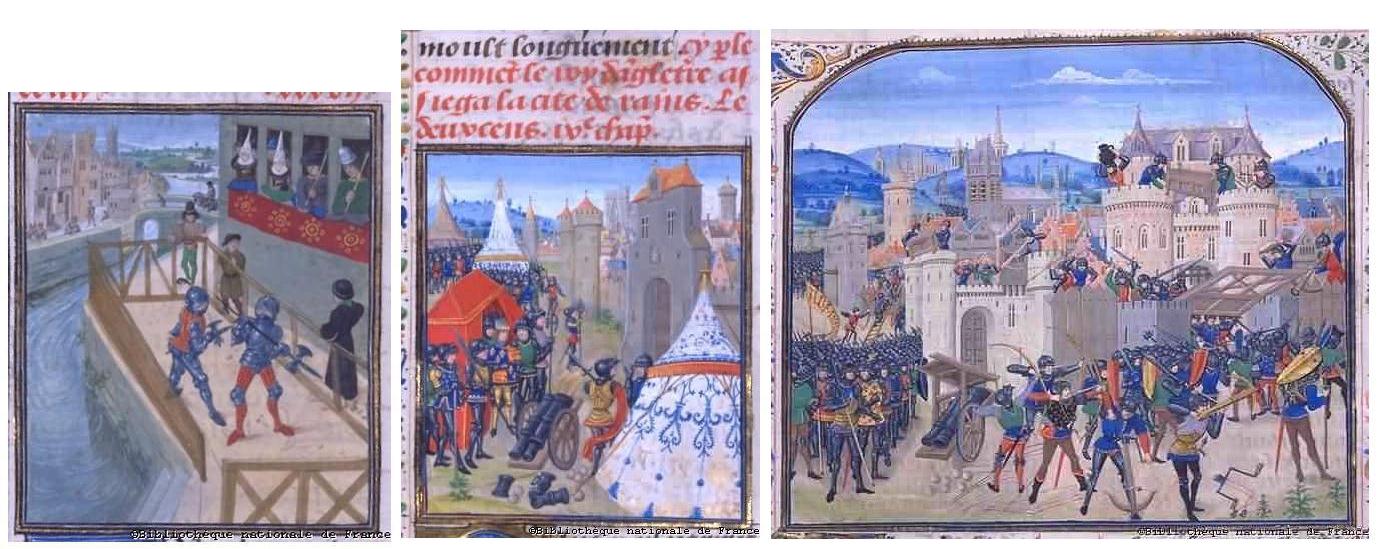 moult longuement. cy ple
commēt le roy dāgleterre as
siega la cite de rains. Le
deuxcens. ix.e chap.
©Bibliothèque nationale de France
©Bibliothèque nationale de France
©Bibliothèque nationale de France